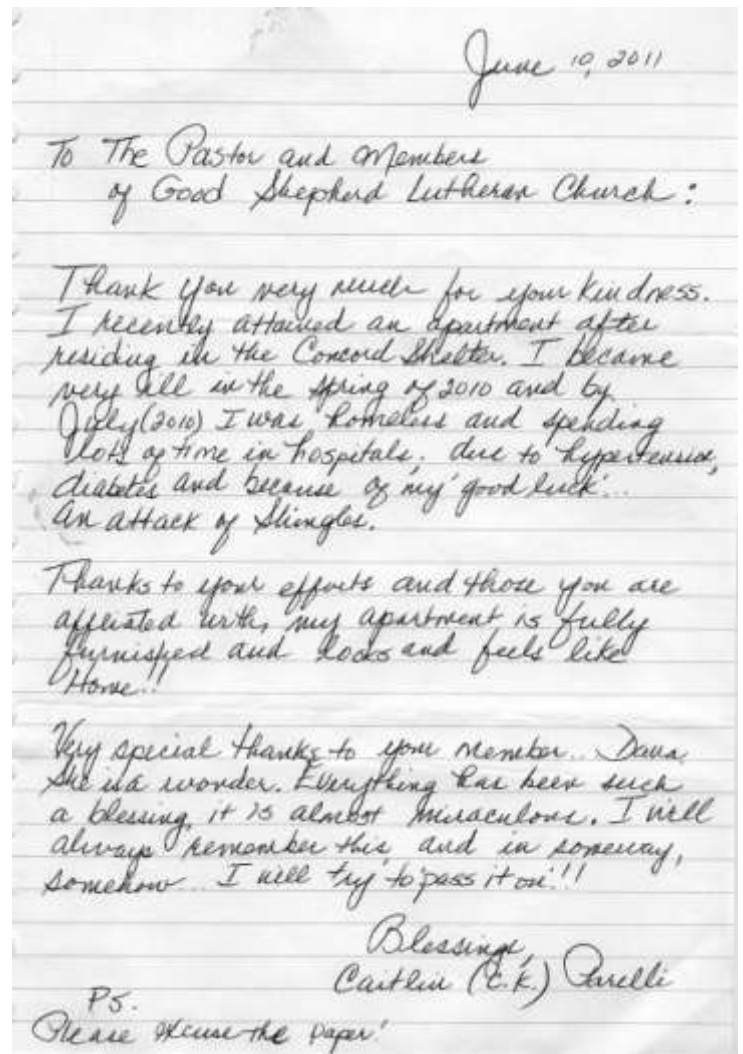 June 10, 2011
To The Pastor and Members
of Good Shepherd Lutheran Church:
Thank you very much for your kindness.
I recently attained an apartment after
residing in the Concord Shelter. I became
very ill in the spring of 2010 and by
July (2010) I was homeless and spending
lots of time in hospitals; due to hypertension,
diabetes and because of my 'good luck'...
an attack of Shingles.
Thanks to your efforts and those you are
affiliated with, my apartment is fully
furnished and looks and feels like
"Home"!!
Very special thanks to your member... Dana.
She is a wonder. Everything has been such
a blessing, it is almost miraculous. I will
always remember this, and in someway,
somehow... I will try to 'pass it on'!!
Blessings,
Caitlin (C.K.) Parelli
PS.
Please excuse the paper!